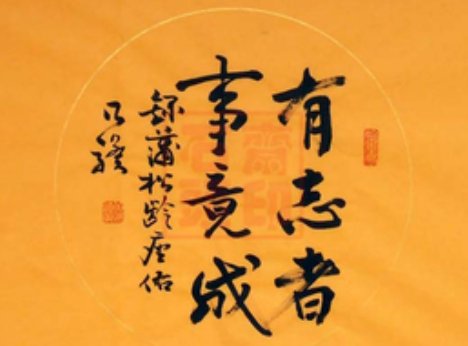 有志者
事竟成
録蒲松齡座佑